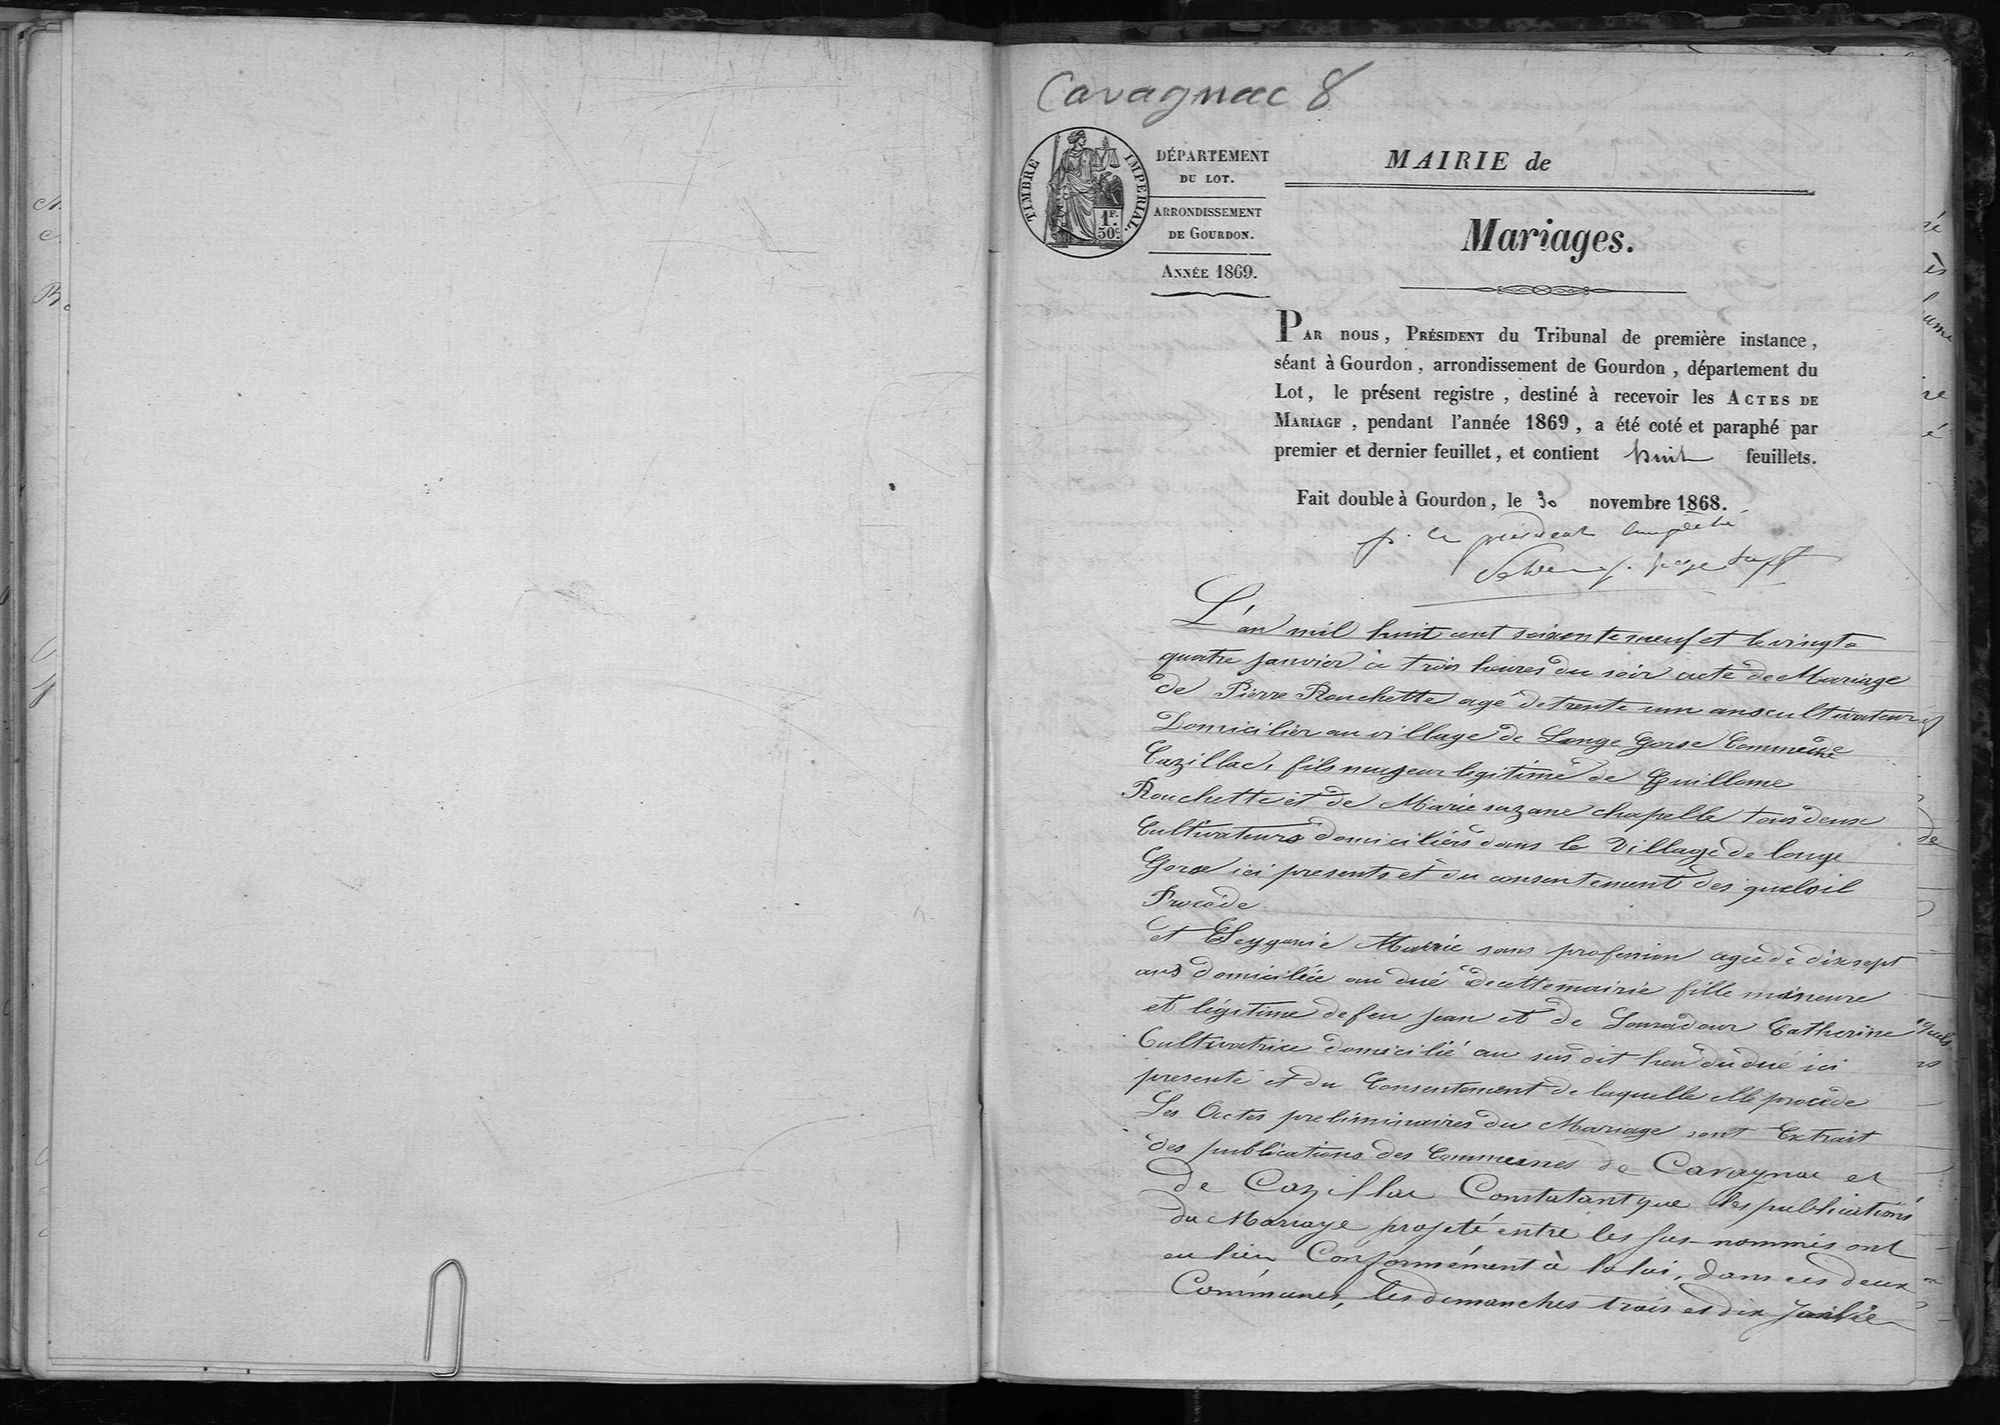 Cavagnac 8
TIMBRE IMPERIAL.
1F. 50c
DÉPARTEMENT
DU LOT.
ARRONDISSEMENT
DE GOURDON.
ANNÉE 1869.
MAIRIE de
Mariages.
PAR nous, PRÉSIDENT du Tribunal de première instance,
séant à Gourdon, arrondissement de Gourdon, département du
Lot, le présent registre, destiné à recevoir les ACTES DE
MARIAGE, pendant l'année 1869, a été coté et paraphé par
premier et dernier feuillet, et contient huit feuillets.
Fait double à Gourdon, le 30 novembre 1868.
p. le président empêché
juge supt
L'an mil huit cent soixante neuf et le vingt
quatre janvier à trois heures du soir acte de Mariage
de Pierre Rouchette agé de trente un ans cultivateur
Domicilier au village de Longe Gorse Commune de
Cazillac, fils majeur legitime de Guillome
Rouchette et de Marie suzane chapelle tous deux
Cultivateurs domiciliés dans le Village de longe
Gorse ici presents et du consentement des quels il
Procède
et Leygonie Marie sans profession agée de dix sept
ans domiciliée au dué de cette mairie fille mineure
et légitime de feu Jean et de Louradour Catherine
Cultivatrice domicilié au sus dit lieu du dué ici
presente et du Consentement de laquelle elle procède
Les Actes preliminaires du Mariage sont Extrait
des publications des Communes de Cavagnac et
de Cazillac Constatant que les publications
du Mariage projeté entre les sus-nommés ont
eu lieu Conformément à la loi, dans ces deux
Communes, les dimanches trois et dix Janvier